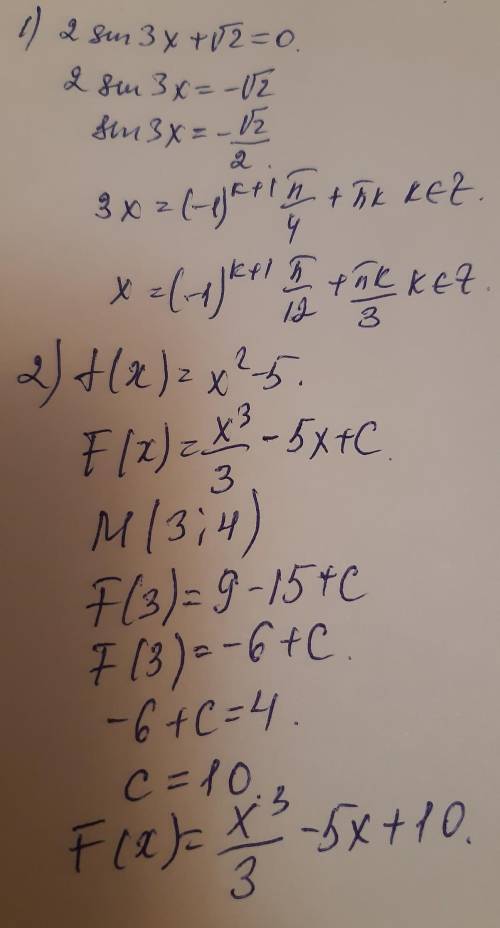 1) 2 sin 3x + √2 = 0.
2 sin 3x = -√2
sin 3x = -√2/2.
3x = (-1)^{k+1} π/4 + πk k∈Z.
x = (-1)^{k+1} π/12 + πk/3 k∈Z.
2) f(x) = x² - 5.
F(x) = x³/3 - 5x + C.
M(3; 4)
F(3) = 9 - 15 + C
F(3) = -6 + C.
-6 + C = 4.
C = 10.
F(x) = x³/3 - 5x + 10.